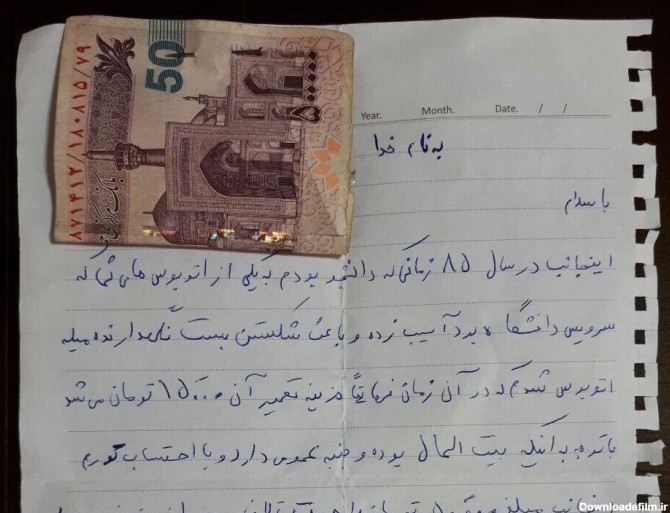 50
۵۰۰۰۰۰
۷۹/۸۱۵ ۱۸۰/۸۷۱۴۱۲
Year. Month. Date. / /
به نام خدا
با سلام
اینجانب در سال ۸۵ زمانی که دانشجو بودم به یکی از اتوبوس های شما که
سرویس دانشگاه بود آسیب زده و باعث شکستن بست نگهدارنده میله
اتوبوس شدم که در آن زمان فرضاً هزینه تعمیر آن ۱۵۰۰۰ تومان می شد
با توجه به اینکه بیت المال بوده و جنبه عمومی دارد و با احتساب تورم
Downloadefilm.ir